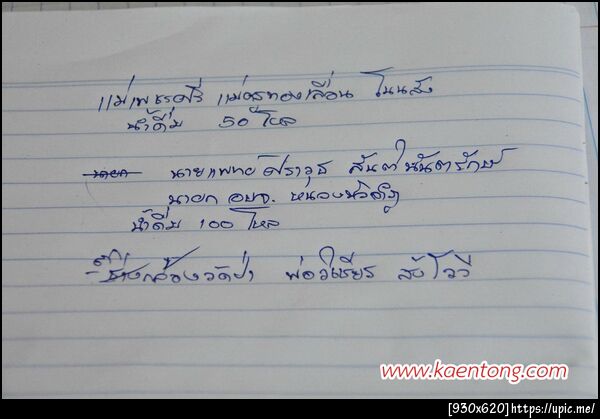 แม่เพชรศรี แม่ทองเลื่อน โนนสัง
น้ำดื่ม 50 โหล
นายแพทย์ศราวุธ สันตินันตรักษ์
นายก อบจ. หนองบัวลำภู
น้ำดื่ม 100 โหล
วัดป่า พ่อวิเชียร
www.kaentong.com
[930x620]https://upic.me/